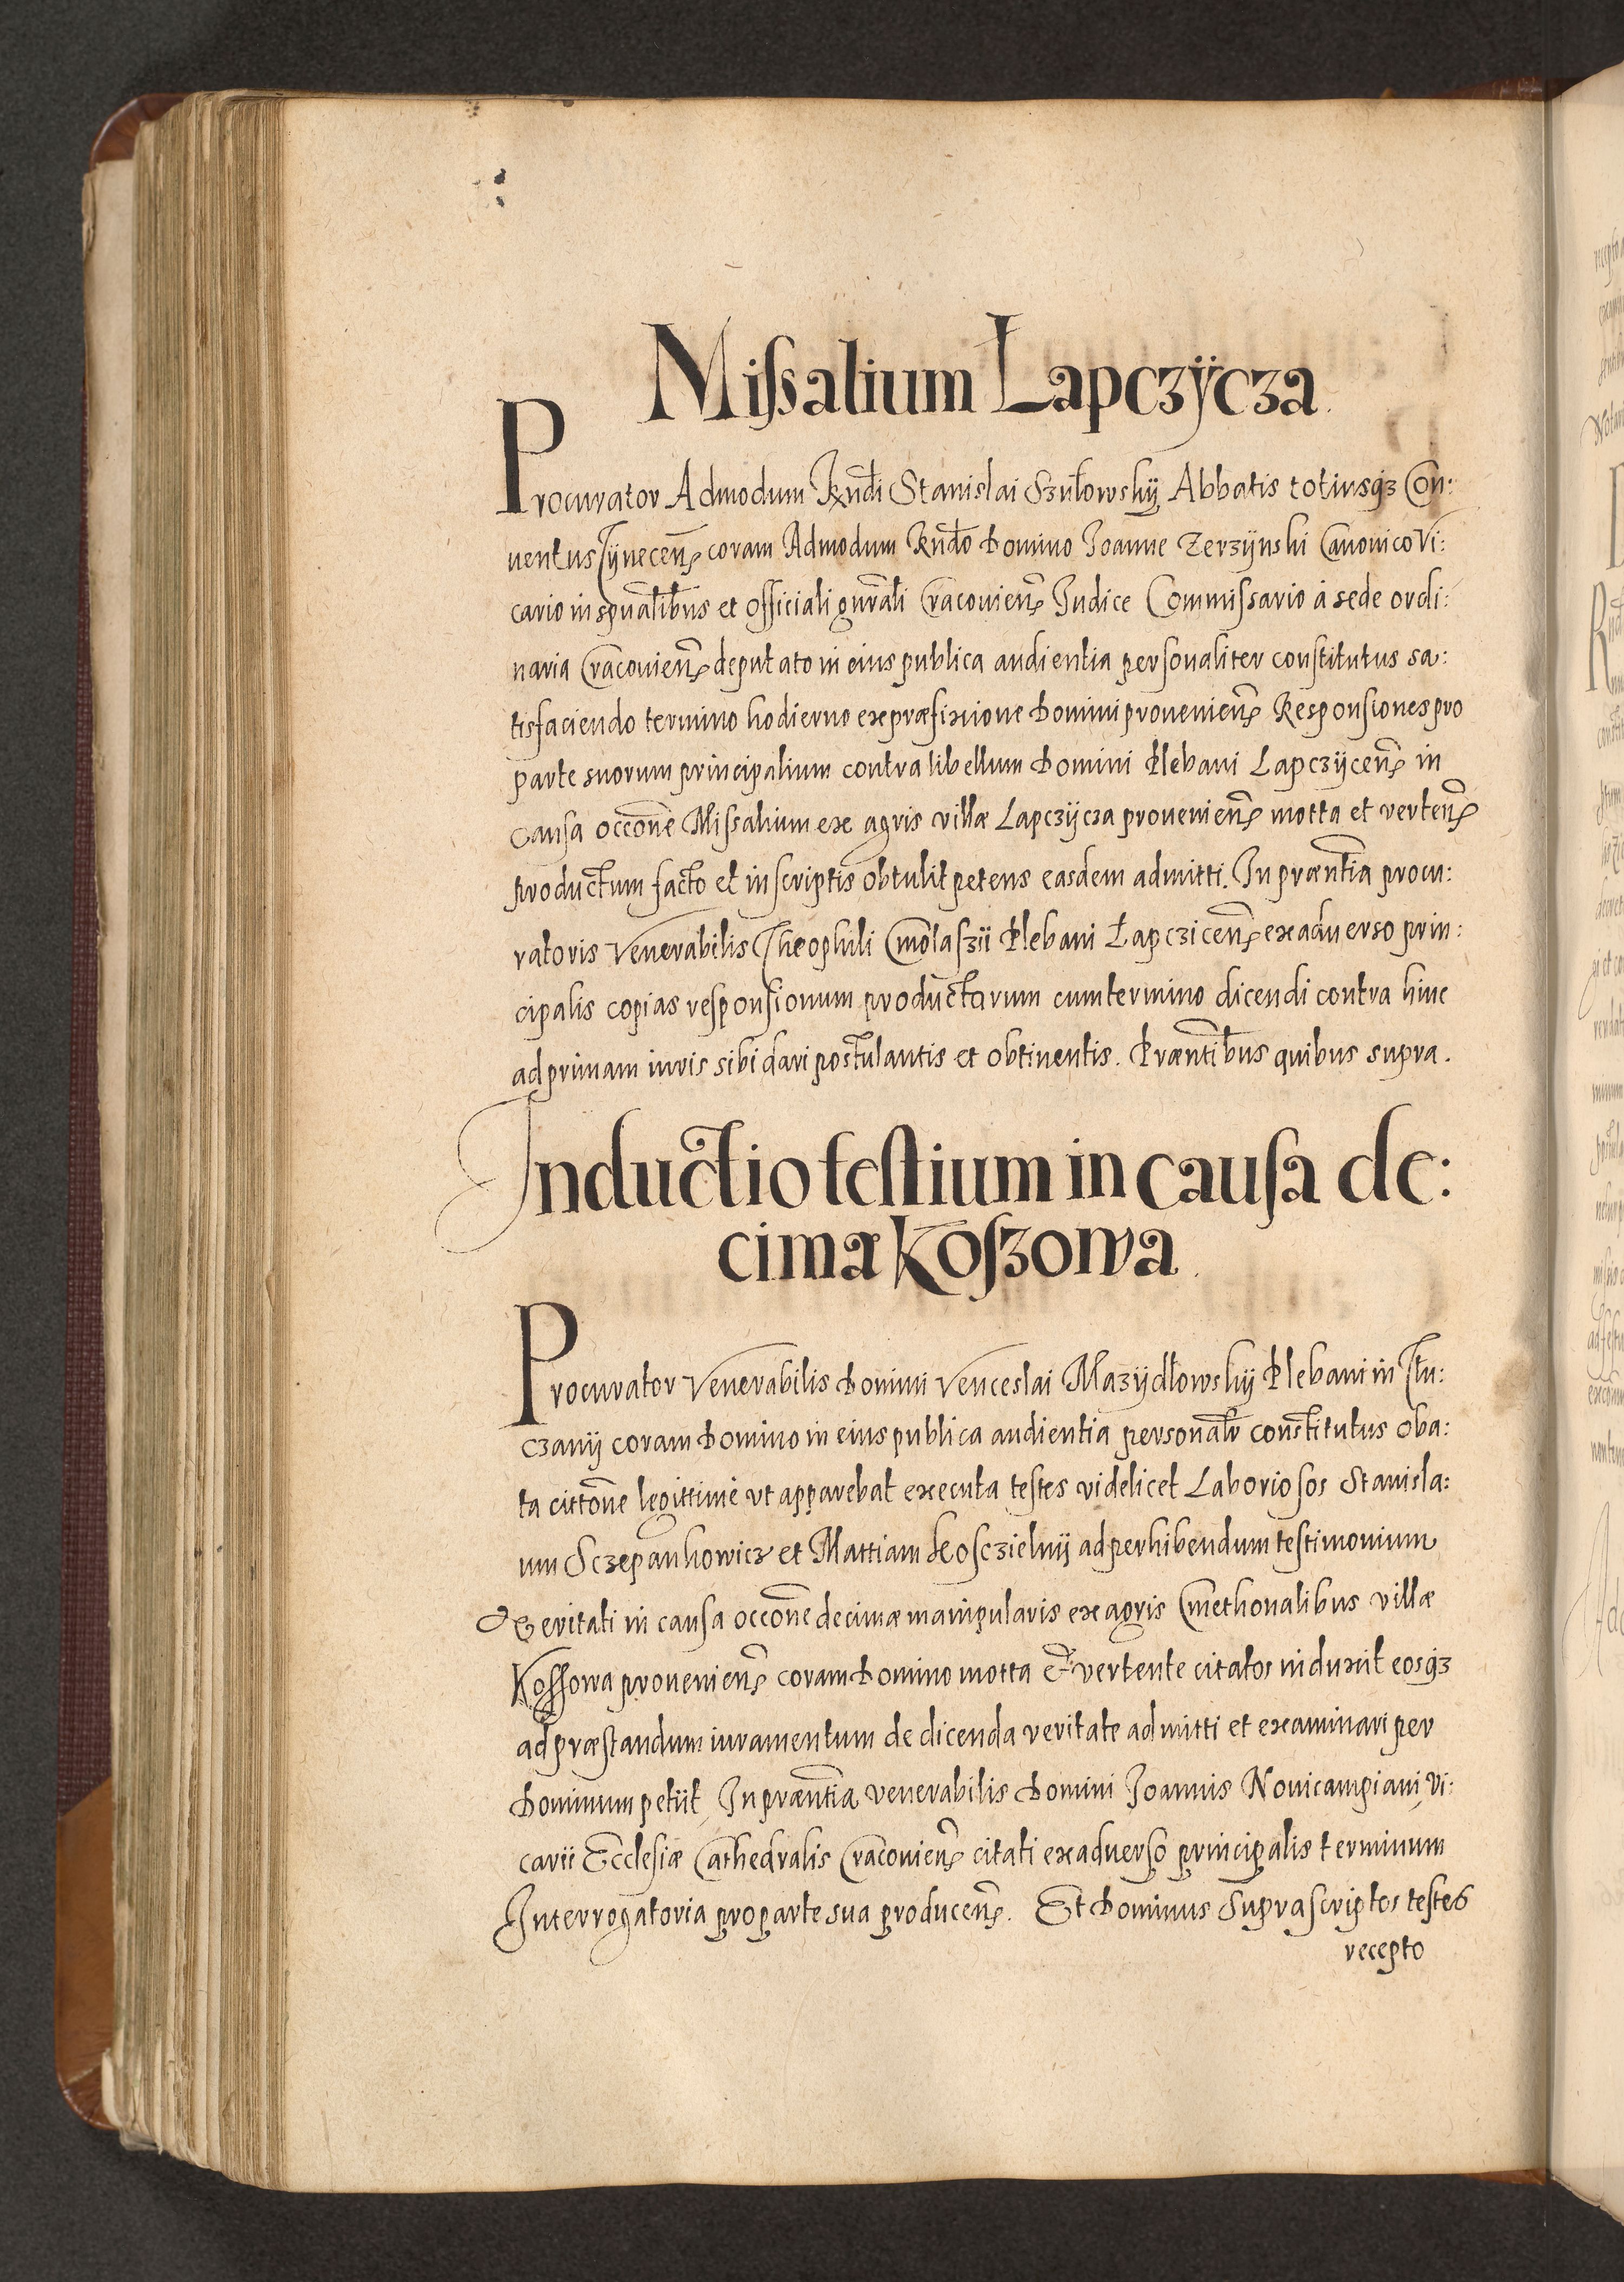 Missalium Lapczÿcza.
Procurator Admodum Rńdi Stanislai Szułowskÿ Abbatis totiusqз Con:
uentus Tÿnecen̄. coram Admodum Rńdo Domino Joanne Zerzÿnski Canonico Vi:
cario in spūalibus et Officiali gn̄rali Cracouien̄. Judice Commissario à sede ordi:
naria Cracouien̄. deputato in eius publica audientia personaliter constitutus sa:
tisfaciendo termino hodierno ex præfixione Domini prouenien̄. Responsiones pro
parte suorum principalium contra libellum Domini Plebani Lapczÿcen̄. in
causa occōne Missalium ex agris villæ Lapczÿcza prouenien̄. motta et verten̄.
productum facto et in scriptis obtulit petens easdem admitti. In præn̄tia procu:
ratoris Venerabilis Theophili Cmolaszii Plebani Łapczicen̄. ex aduerso prin:
cipalis copias responsionum productarum cum termino dicendi contra hinc
ad primam iuris sibi dari postulantis et obtinentis. Præn̄tibus quibus supra.
Inductio testium in causa de:
cimæ Koszowa.
Procurator Venerabilis Domini Venceslai Mazÿdłowskÿ Plebani in Tłu:
czanÿ coram Domino in eius publica audientia personalr̄ constitutus oba:
ta cittōne legittimè vt apparebat executa testes videlicet Laboriosos Stanisla:
um Sczepankowicz et Mattiam Kosczielnÿ ad perhibendum testimonium
Veritati in causa occōne decimæ manipularis ex agris Cmethonalibus villæ
Kossowa prouenien̄. coram Domino motta et vertente citatos induxit eosqз
ad præstandum iuramentum de dicenda veritate admitti et examinari per
Dominum petiit. In præn̄tia venerabilis Domini Joannis Nouicampiani Vi:
carii Ecclesiæ Cathedralis Cracouien̄. citati ex aduerso principalis terminum
Interrogatoria pro parte sua producen̄. Et Dominus suprascriptos testes
recepto